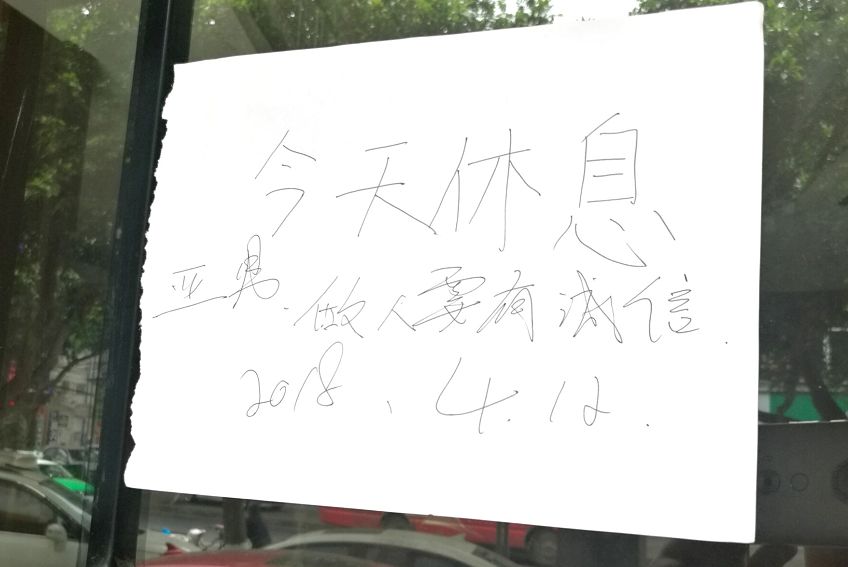 今天休息
亚男.做人要有诚信.
2018、4.12.